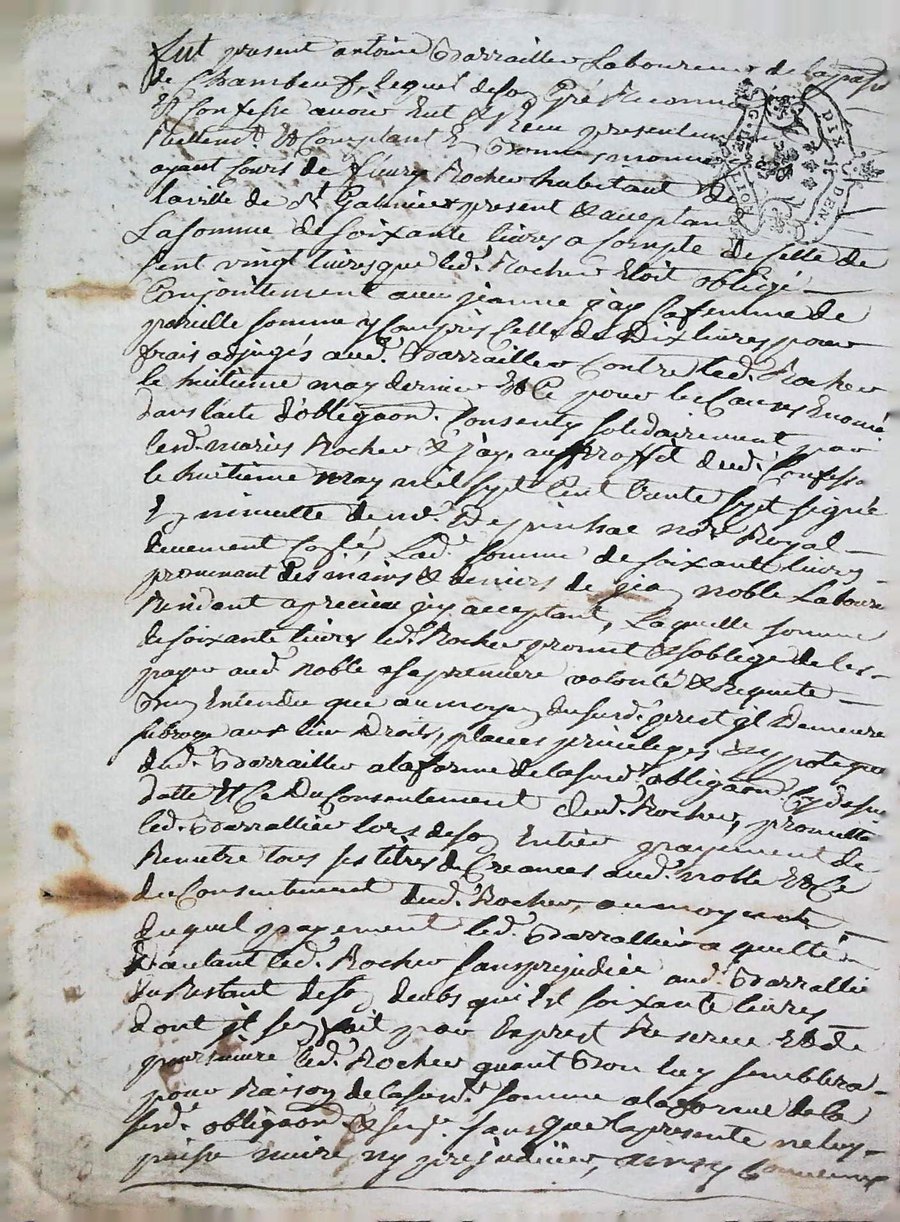 Fut present antoine Barrallier Laboureur de la parr
de Chambeuf, lequel de son Gré Reconnu
Et Confesse avoir Eut & Receu presentem
Reellemt. & Comptant En Bonne monnoye
ayant Cours de fleury Rocher habitant de
la ville de St. Galmier present & acceptant
La somme de soixante livres a Compte de Celle de
Cent vingt livres que led. Rocher Etoit obligé
Conjointement avec jeanne jay sa femme de
pareille somme y Compris Celle de Dix livres pour
frais adjugés aud. Barrallier Contre led. Rocher
le huitieme may dernier Et Ce pour les Causes Enoncé
dans l'acte d'obligaon. Consenty solidairement par
lesd. mariés Rocher & jay, au proffit dud. Confessa
le huitieme may mil sept Cent trente sept signé
En minutte de me. Despinhac nore. Royal
deuement Collé, Lad. somme de soixante livres
provenant des mains & deniers de jean noble Laboure
Resident a precieu jcy acceptant, Laquelle somme
de soixante livres led. Rocher promet & s'oblige de les
payer aud. noble a sa premiere volonté & Requete
Bien Entendu que au moyen du susd. prest jl Demeure
subrogé aux lieu Droits, places privileges, & hypoteque
dud. Barrallier a la forme de la susd. obligaon. Cy dessu
datté Et Ce Du Consentement dud. Rocher, promettant
led. Barrallier lors de son Entier payement de
Remettre tous ses titres de Creances aud. noble Et Ce
du Consentement dud. Rocher, au moyen
duquel payement led. Barrallier a quitté
D'autant led. Rocher sans prejudice aud. Barrallie
Du Restant de son deub qui Est soixante livres
dont jl s'en fait par Exprest Reserve Et de
poursuivre led. Rocher quant Bon luy semblera
pour Raison de la susd. somme a la forme de la
susd. obligaon. & sans que la presente ne luy
puisse nuire ny prejudicier,
GEN
DIX DEN.